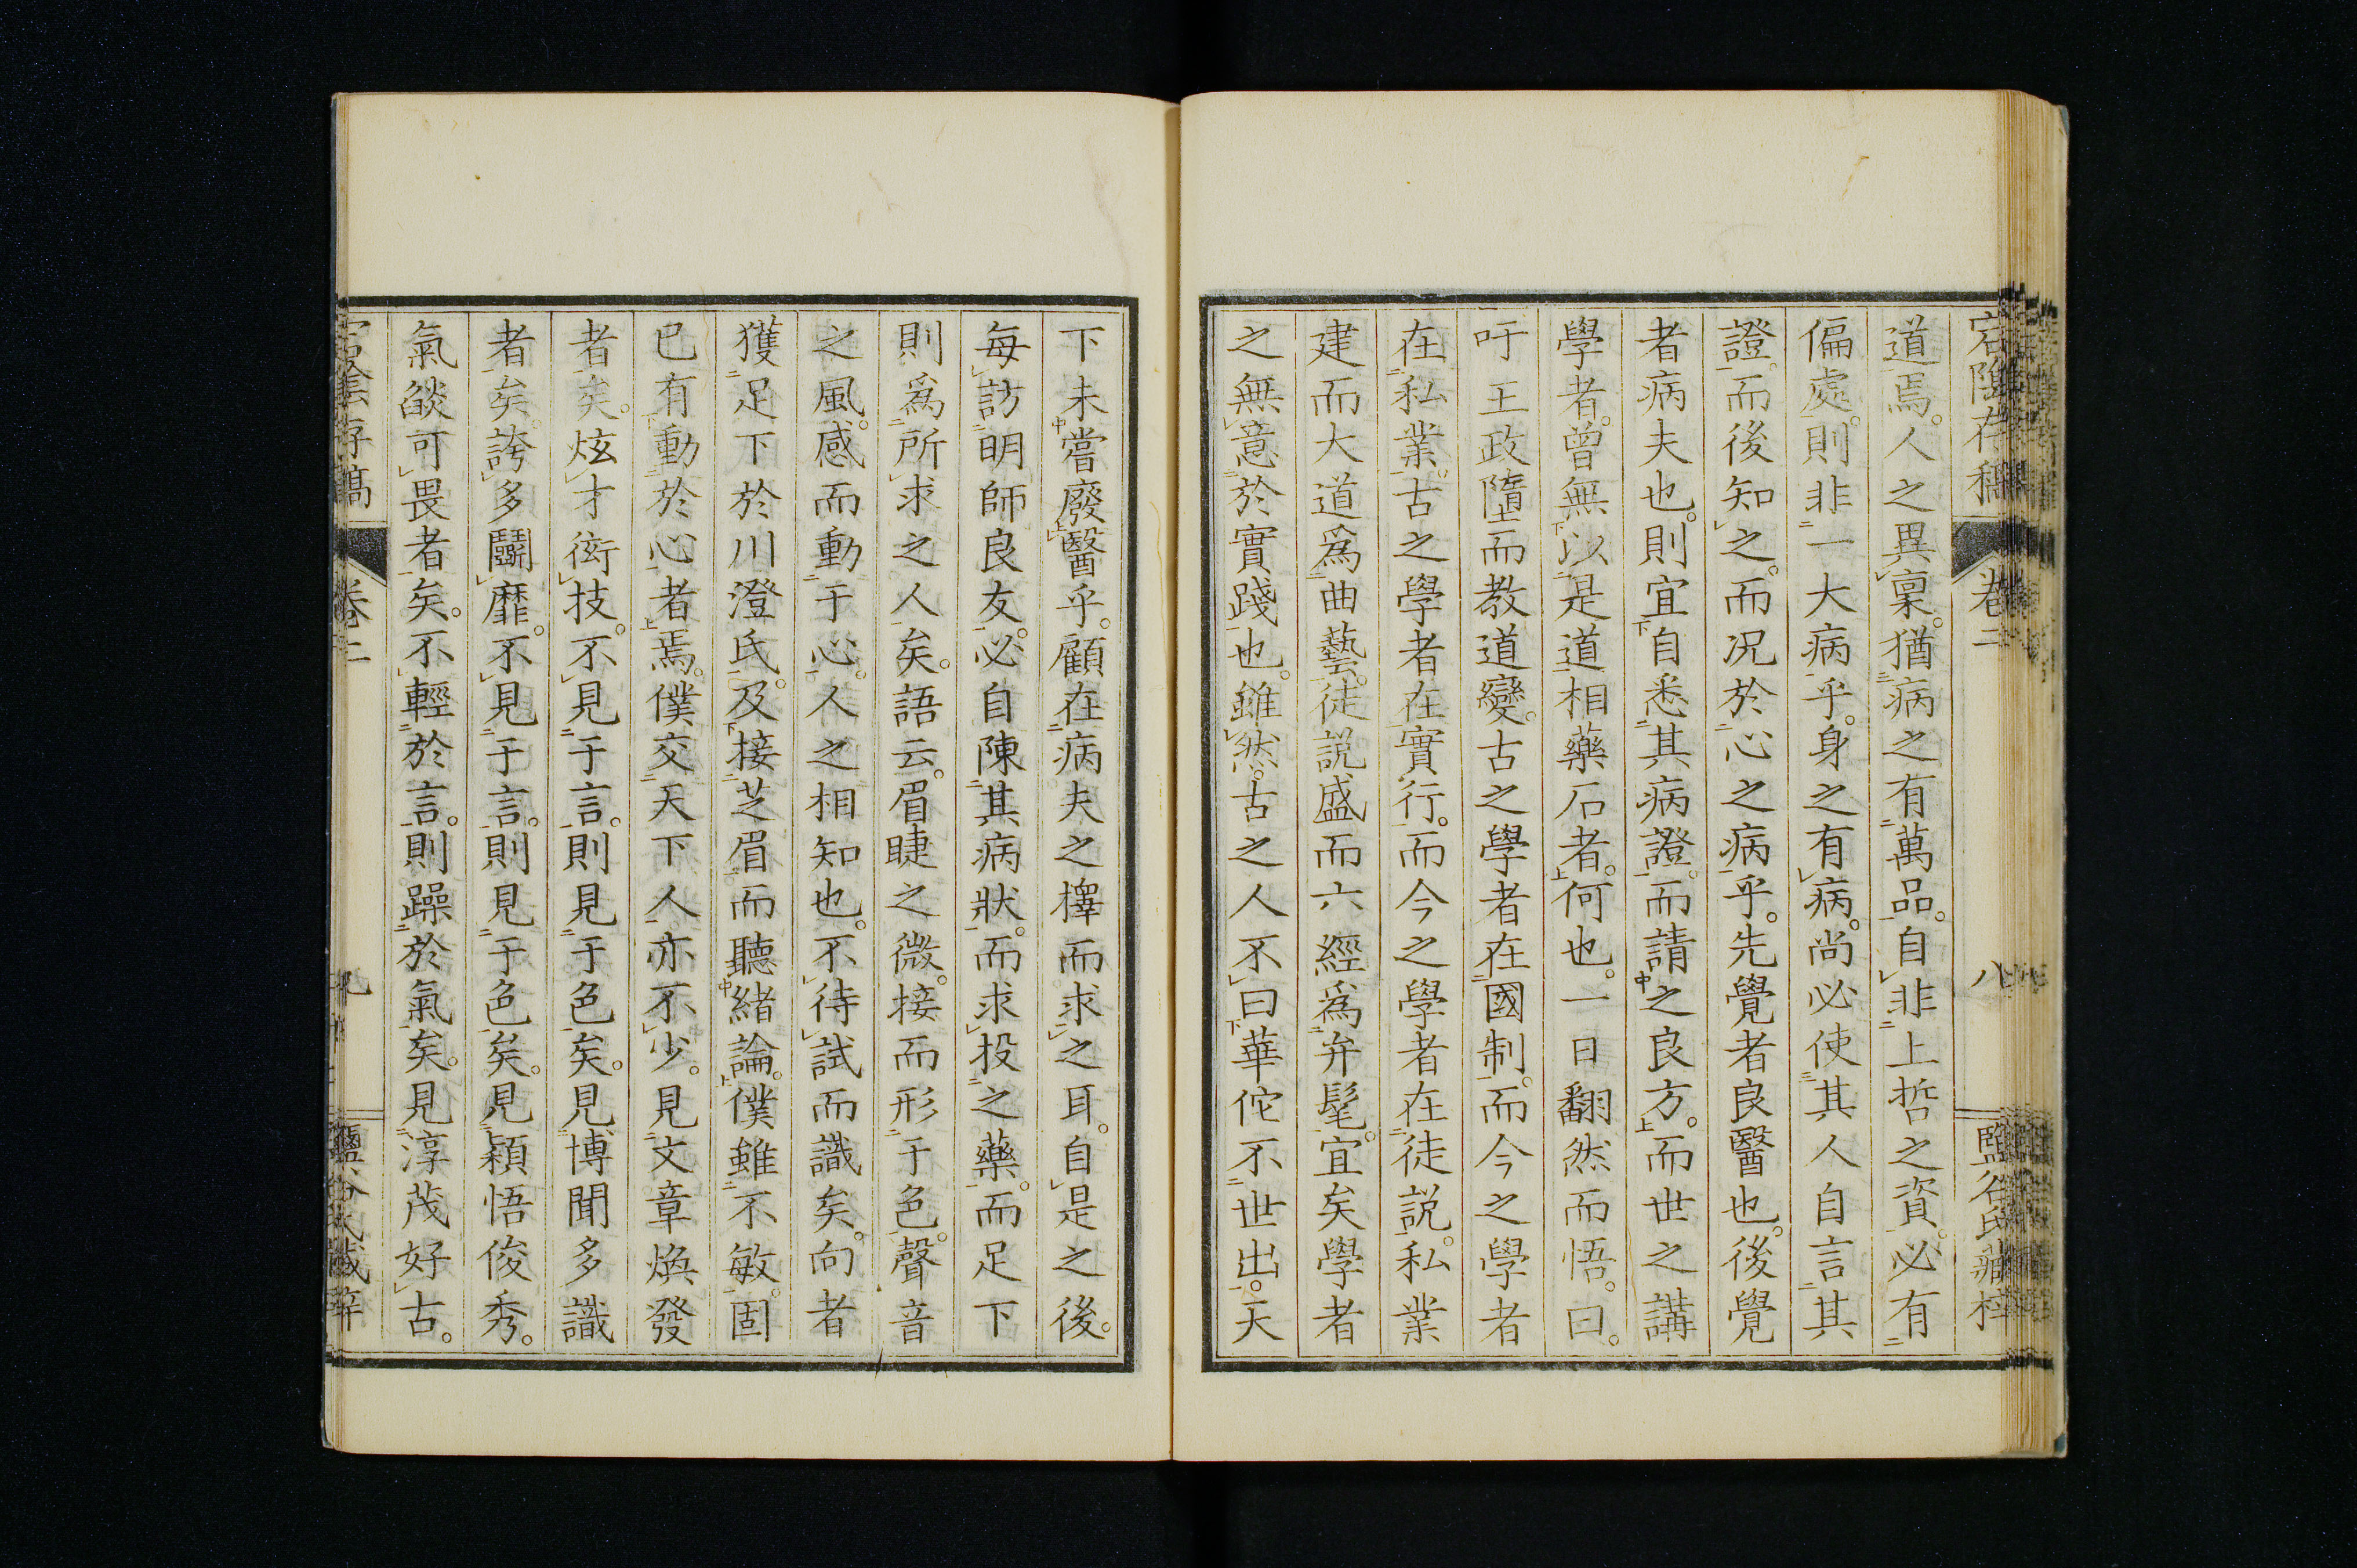 宕陰存稿 卷二 八 鹽谷氏藏梓
道焉。人之異稟。猶病之有萬品。自非上哲之資。必有
偏處。則非一大病乎。身之有病。尚必使其人自言其
證。而後知之。而況於心之病乎。先覺者良醫也。後覺
者病夫也。則宜自悉其病證。而請之良方。而世之講
學者。曾無以是道相藥石者。何也。一日翻然而悟。曰。
吁王政墮而教道變。古之學者在國制。而今之學者
在私業。古之學者在實行。而今之學者在徒説。私業
建而大道爲曲藝。徒説盛而六經爲弁髦。宜矣學者
之無意於實踐也。雖然。古之人不曰華佗不世出。天
下未嘗廢醫乎。顧在病夫之擇而求之耳。自是之後。
每訪明師良友。必自陳其病狀。而求投之藥。而足下
則爲所求之人矣。語云。眉睫之微。接而形于色。聲音
之風。感而動于心。人之相知也。不待試而識矣。向者
獲足下於川澄氏。及接芝眉而聽緒論。僕雖不敏。固
已有動於心者焉。僕交天下人。亦不少。見文章煥發
者矣。炫才衒技。不見于言。則見于色矣。見博聞多識
者矣。誇多鬭靡。不見于言。則見于色矣。見穎悟俊秀。
氣燄可畏者矣。不輕於言。則躁於氣矣。見淳茂好古。
宕陰存稿 卷二 九 鹽谷氏藏梓